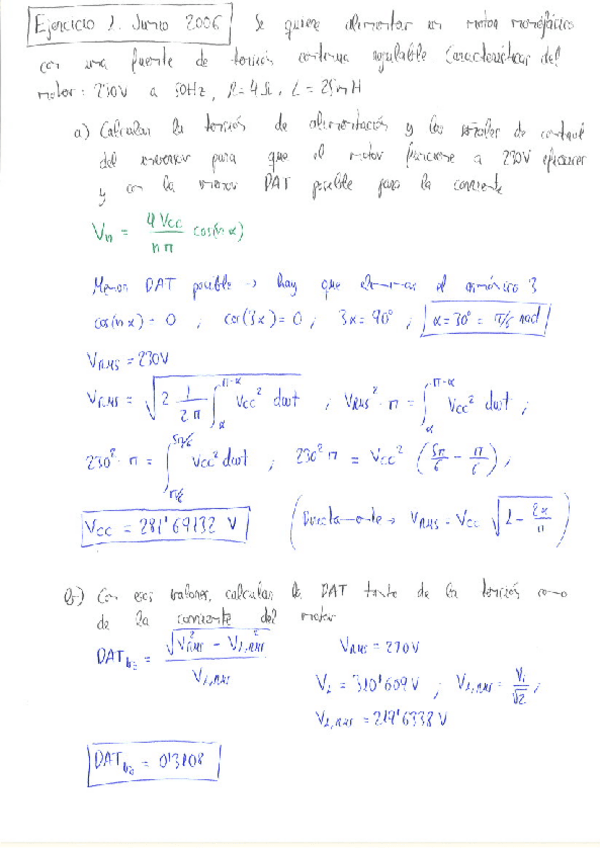 Ejercicio 1. Junio 2006 Se quiere alimentar un motor monofásico
con una fuente de tensión continua regulable Características del
motor: 230V a 50Hz, R=4Ω, L=25mH
a) Calcular la tensión de alimentación y las señales de
del inversor para que el motor funcione a 230V eficaces
y con la menor DAT posible para la corriente
Vn = 4Vcc / nπ cos(nα)
Menor DAT posible → hay que eliminar el armónico 3
cos(nα) = 0 ; cos(3α) = 0 ; 3α = 90° ; α = 30° = π/6 rad
VRMS = 230V
VRMS = √(2 1/2π ∫_α^{π-α} Vcc² dωt) ; VRMS² · π = ∫_α^{π-α} Vcc² dωt ;
230² · π = ∫_{π/6}^{5π/6} Vcc² dωt ; 230² π = Vcc² (5π/6 - π/6) ;
Vcc = 281'69132 V (Directamente → VRMS = Vcc √(1 - 2α/π))
b) Con esos valores, calcular la DAT tanto de la tensión como
de la corriente del motor
DAT = √(VRMS² - V1,RMS²) / V1,RMS VRMS = 230V
V1 = 310'609V ; V1,RMS = V1/√2 ;
V1,RMS = 219'6338V
DAT = 0'3108